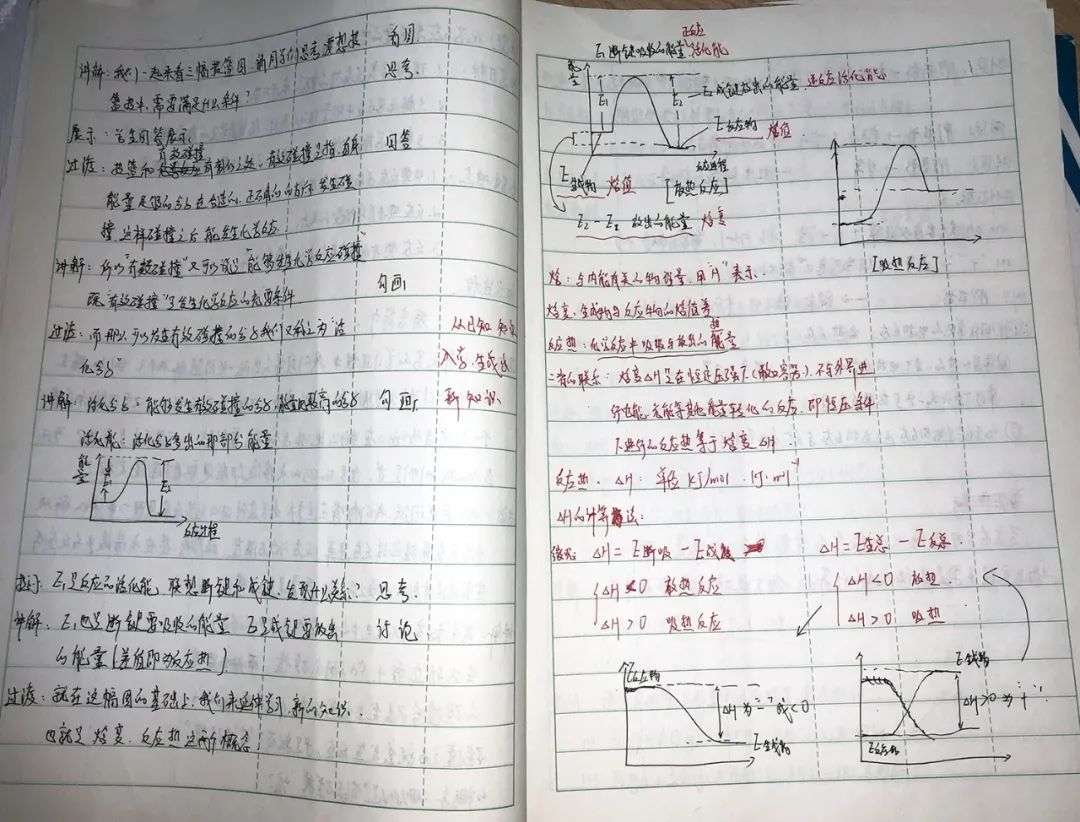 讲解：我们一起来看三幅投篮图，请同学们思考要想投 看图
篮投中，需要满足什么条件？ 思考.
展示：学生回答展示；
有效碰撞
过渡：投篮和 有相似之处，有效碰撞是指，具有 回答
能量足够的分子在合适的 方向发生碰
撞 这样碰撞之后能发生化学反应.
讲解：所以"有效碰撞"又可以说是"能够发生化学反应碰撞"
既"有效碰撞"是发生化学反应的充要条件 勾画.
过渡：而那么可以发生有效碰撞的分子我们又称之为"活 从已知知识
化分子" 入手，生成出
讲解：活化分子：能够发生有效碰撞的分子，能量比较高的分子 勾画. 新知识.
活化能：活化分子多出的那部分能量；
能量
E₁
E₂
反应过程
提示：E₁是反应的活化能，联想断键和成键，发现什么关系？ 思考.
讲解：E₁也是断键要吸收的能量 E₂是成键要放出 讨论
的能量[差值即为反应热]
过渡：就在这幅图的基础上，我们来延伸学习，新的知识.
也就是 焓变，反应热这两个概念；
正反应
E₁断键吸收的能量 活化能
能量
E₁
E₂
E₂成键放出的能量，逆反应活化能
E反应物 焓值
反应过程
E生成物 焓值
[放热反应]
放出的能量 焓变
[吸热反应]
焓：与内能有关的物理量，用"H"表示.
焓变：生成物与反应物的焓值差
反应热：化学反应中吸收与放出的热能量
二者的联系：焓变ΔH是在恒定压强下(敞口容器)，不与外界进
行电能、光能等其他能量转化的反应，即恒压条件
下进行的反应热等于焓变ΔH.
反应热. ΔH：单位 kJ/mol. kJ·mol⁻¹
ΔH的计算 法：
ΔH = E断吸 - E成放 ΔH = E生总 - E反总
ΔH < 0 放热反应 ΔH < 0 放热.
ΔH > 0 吸热反应 ΔH > 0 吸热
E反应物
ΔH为"-"或<0
E生成物
E生成物
ΔH>0为"+"
E反应物